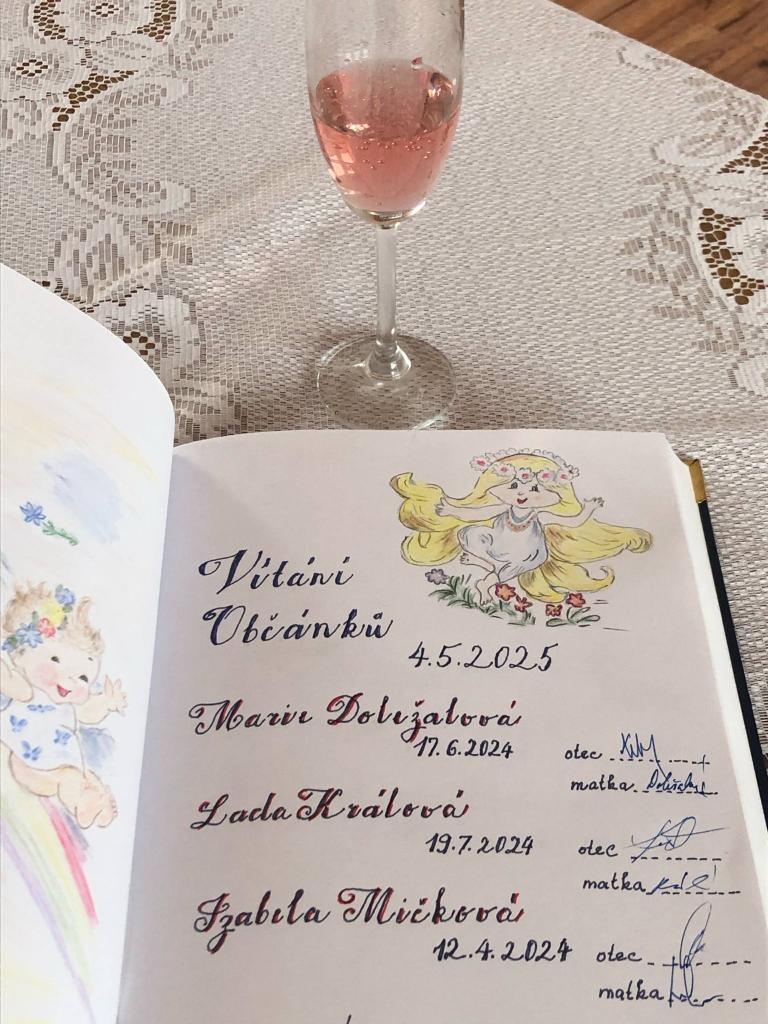 Vítání
Občánků
4.5.2025
Marie Doležalová
17.6.2024
otec
matka
Lada Králová
19.7.2024
otec
matka
Izabela Mičková
12.4.2024
otec
matka